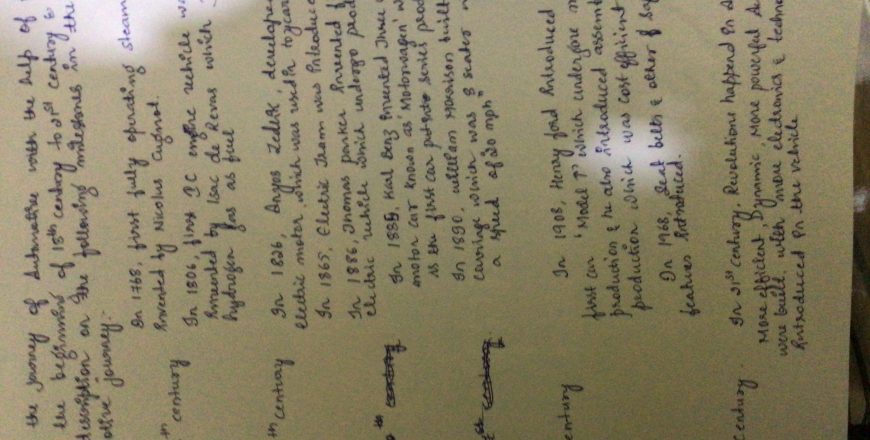 the journey of Automotive with the help of
the beginning of 18th century to 21st century &
description on the following milestones in the
otive journey.
th century
In 1768, first fully operating steam
Invented by Nicolus Cugnot.
In 1806, first IC engine vehicle wa
Invented by Isac de Revas which
hydrogen gas as fuel
th century
In 1826, Anyos Jedlik, develope
Electric motor, which was used in toycar
In 1865, Electric Tram was Introduce
In 1886, Thomas parker Invented
electric vehicle which undergo prod
th century
In 1885, Karl Benz Invented Three
motor car known as 'Motorwagen' w
is the first car put into series prod
st century
In 1890, william Morrison built
carriage, which was 8 seater
a speed of 20 mph"
entury
In 1908, Henry ford Introduced
first car 'Model T' which undergone m
production & he also introduced assemb
production which was cost efficient
In 1968, Seat belts & other
features Introduced.
entury.
In 21st century, Revolutions happend in
More efficient, Dynamic, more powerful
were built, with more electronics & techno
Introduced in the vehicle